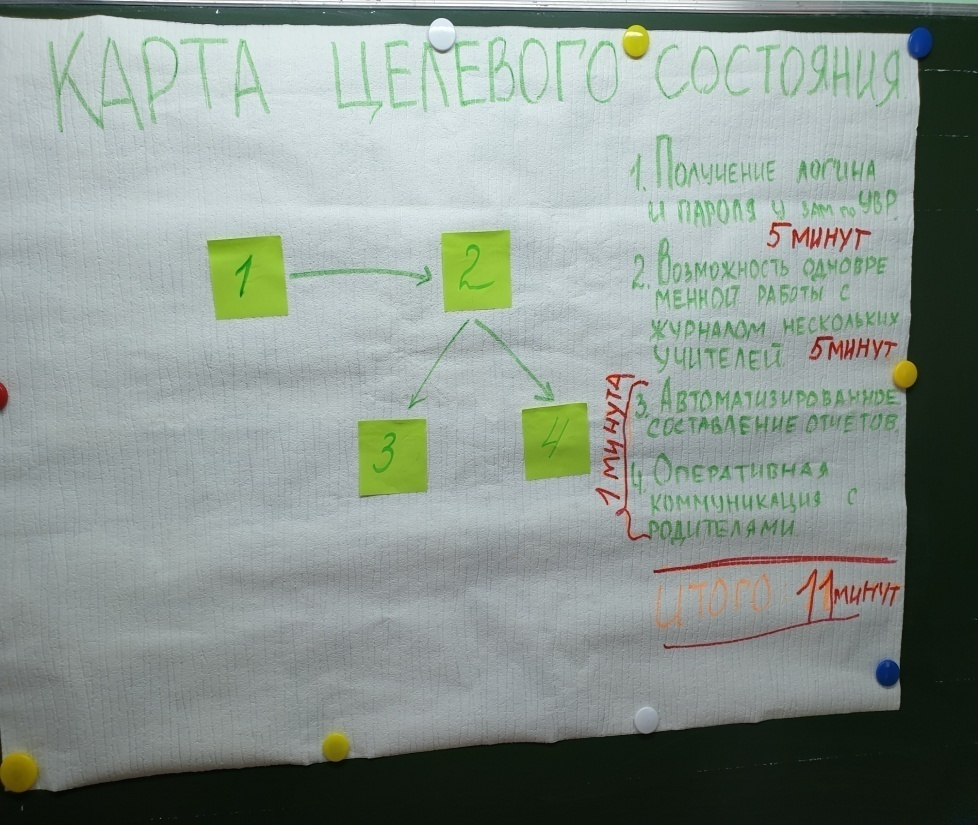 КАРТА ЦЕЛЕВОГО СОСТОЯНИЯ
1
2
3
4
1. ПОЛУЧЕНИЕ ЛОГИНА
И ПАРОЛЯ У ЗАМ ПО УВР
5 МИНУТ
2. ВОЗМОЖНОСТЬ ОДНОВРЕ
МЕННОЙ РАБОТЫ С
ЖУРНАЛОМ НЕСКОЛЬКИХ
УЧИТЕЛЕЙ 5 МИНУТ
1 МИНУТА
3. АВТОМАТИЗИРОВАННОЕ
СОСТАВЛЕНИЕ ОТЧЕТОВ
4. ОПЕРАТИВНАЯ
КОММУНИКАЦИЯ С
РОДИТЕЛЯМИ
ИТОГО : 11 МИНУТ